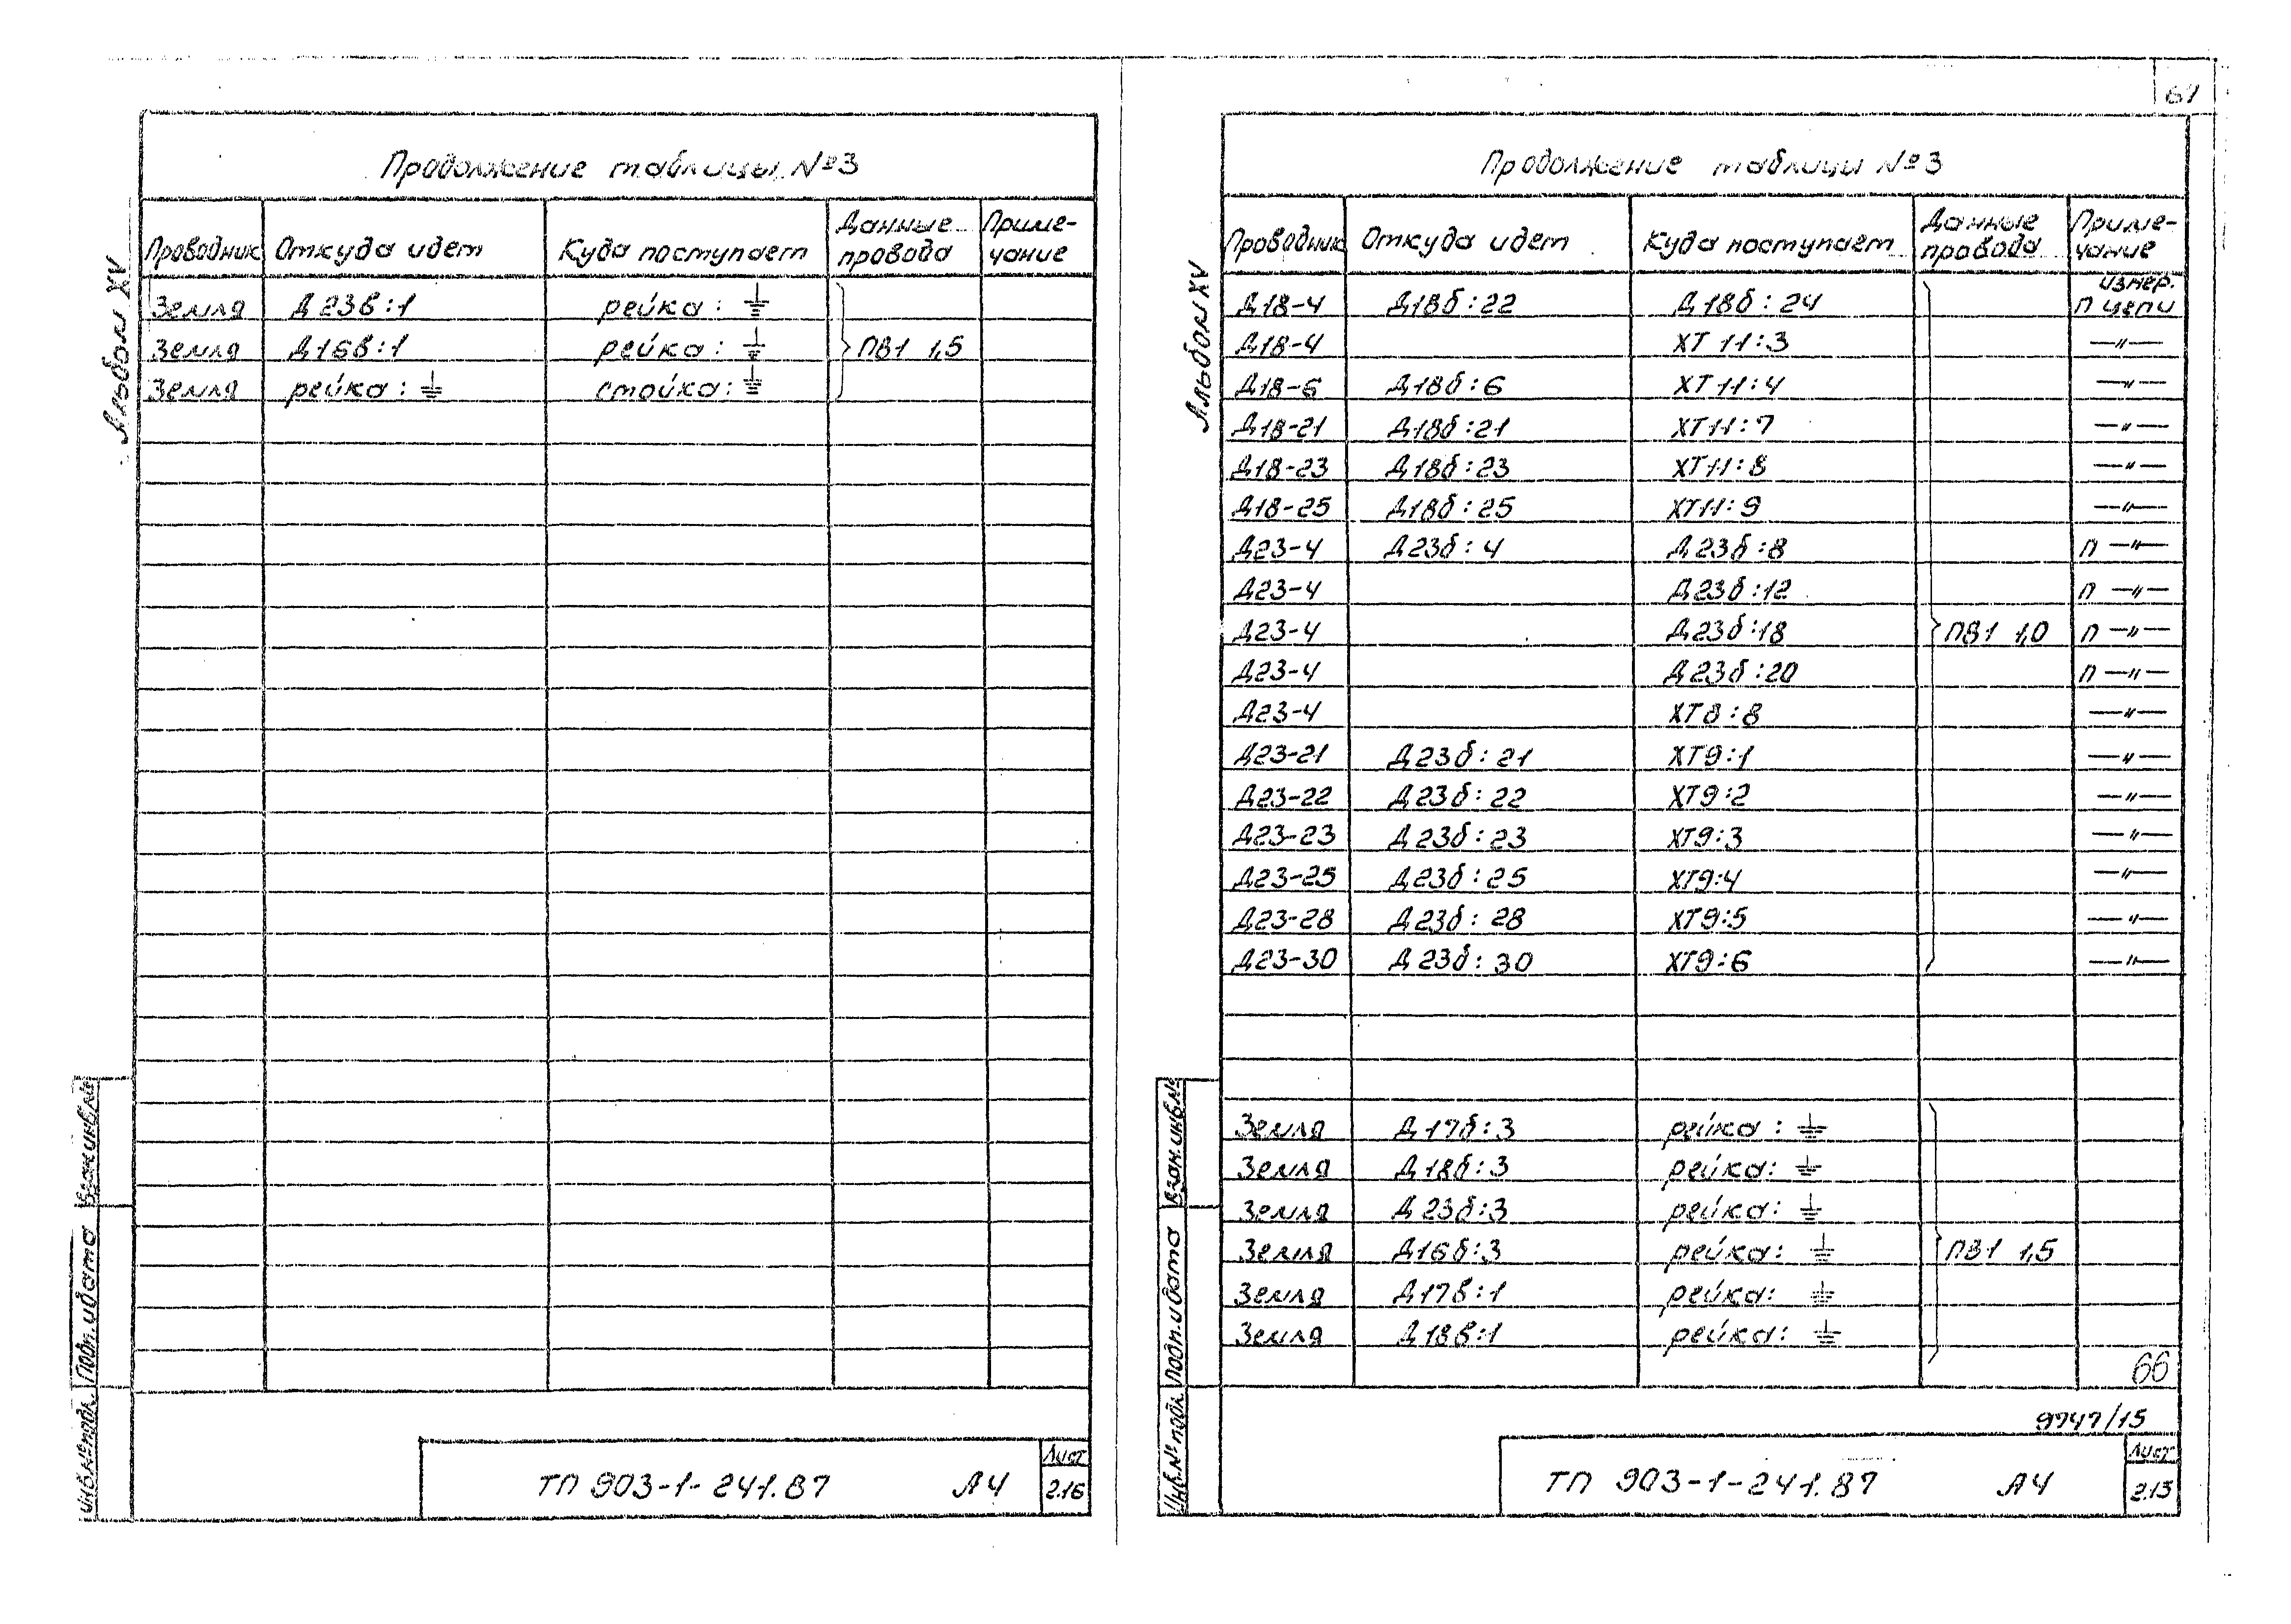 67
Продолжение таблицы №3
Альбом XV
Проводник Откуда идет Куда поступает Данные провода Приме-чание
Земля Д23в:1 рейка: ⏚
Земля Д16в:1 рейка: ⏚ ПВ1 1,5
Земля рейка: ⏚ стойка: ⏚
Взам.инв.№
Подп. и дата
Инв.№ подл.
ТП 903-1-241.87 А4
Лист
2.16
Продолжение таблицы №3
Альбом XV
Проводник Откуда идет Куда поступает Данные провода Приме-чание
Д18-4 Д18б:22 Д18б:24 П измер. цепи
Д18-4 ХТ11:3 —"—
Д18-6 Д18б:6 ХТ11:4 —"—
Д18-21 Д18б:21 ХТ11:7 —"—
Д18-23 Д18б:23 ХТ11:8 —"—
Д18-25 Д18б:25 ХТ11:9 —"—
Д23-4 Д23б:4 Д23б:8 П —"—
Д23-4 Д23б:12 П —"—
Д23-4 Д23б:18 ПВ1 1,0 П —"—
Д23-4 Д23б:20 П —"—
Д23-4 ХТ8:8 —"—
Д23-21 Д23б:21 ХТ9:1 —"—
Д23-22 Д23б:22 ХТ9:2 —"—
Д23-23 Д23б:23 ХТ9:3 —"—
Д23-25 Д23б:25 ХТ9:4 —"—
Д23-28 Д23б:28 ХТ9:5 —"—
Д23-30 Д23б:30 ХТ9:6 —"—
Земля Д17б:3 рейка: ⏚
Земля Д18б:3 рейка: ⏚
Земля Д23б:3 рейка: ⏚
Земля Д16б:3 рейка: ⏚ ПВ1 1,5
Земля Д17в:1 рейка: ⏚
Земля Д18в:1 рейка: ⏚
66
Взам.инв.№
Подп. и дата
Инв.№ подл.
9747/15
ТП 903-1-241.87 А4
Лист
2.15